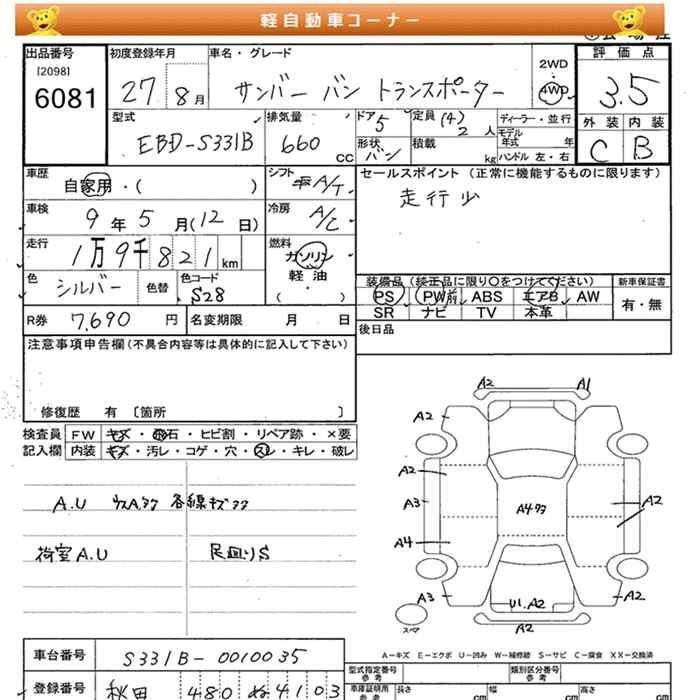 軽自動車コーナー
出品番号
[2098]
6081
初度登録年月
27 8月
車名・グレード
サンバー バン トランスポーター
2WD
4WD
評価点
3.5
外装 内装
C B
型式
EBD-S331B
排気量
660 cc
ドア
5
形状
バン
定員 (4)
2 人
積載
kg
ディーラー・並行
モデル
年式 年
ハンドル 左・右
車歴
自家用・( )
シフト
A/T
車検
9年5月(12日)
冷房
A/C
走行
1万9千821km
燃料
ガソリン
軽油
・
( )
色
シルバー
色替
色コード
S28
R券 7,690 円
名変期限 月 日
セールスポイント(正常に機能するものに限ります)
走行少
装備品(純正品に限り○をつけてください)
PS PW前 ABS エアB AW
SR ナビ TV 本革
新車保証書
有・無
後日品
注意事項申告欄(不具合内容等は具体的に記入して下さい)
修復歴 有 〔箇所 〕
検査員 FW キズ・飛石・ヒビ割・リペア跡・×要
記入欄 内装 キズ・汚レ・コゲ・穴・スレ・キレ・破レ
A.U 各線キズ
荷室A.U 足廻りS
A2 A1
A2
A2
A3
A4
A3
A4
A2
A2
U1.A2
A2
スペア
A-キズ E-エクボ U-凹み W-補修跡 S-サビ C-腐食 XX-交換済
車台番号 S331B-0010035
登録番号 秋田 480 ぬ 4103
型式指定番号
参考
類別区分番号
参考
車庫証明用
参考
長さ cm 幅 cm 高さ cm